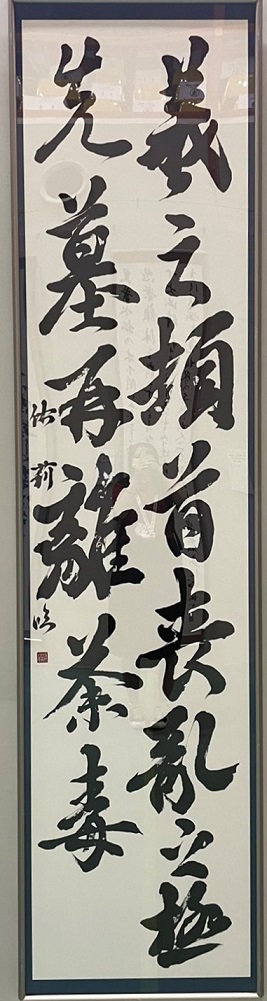 羲之頓首喪亂之極
先墓再離荼毒
臨